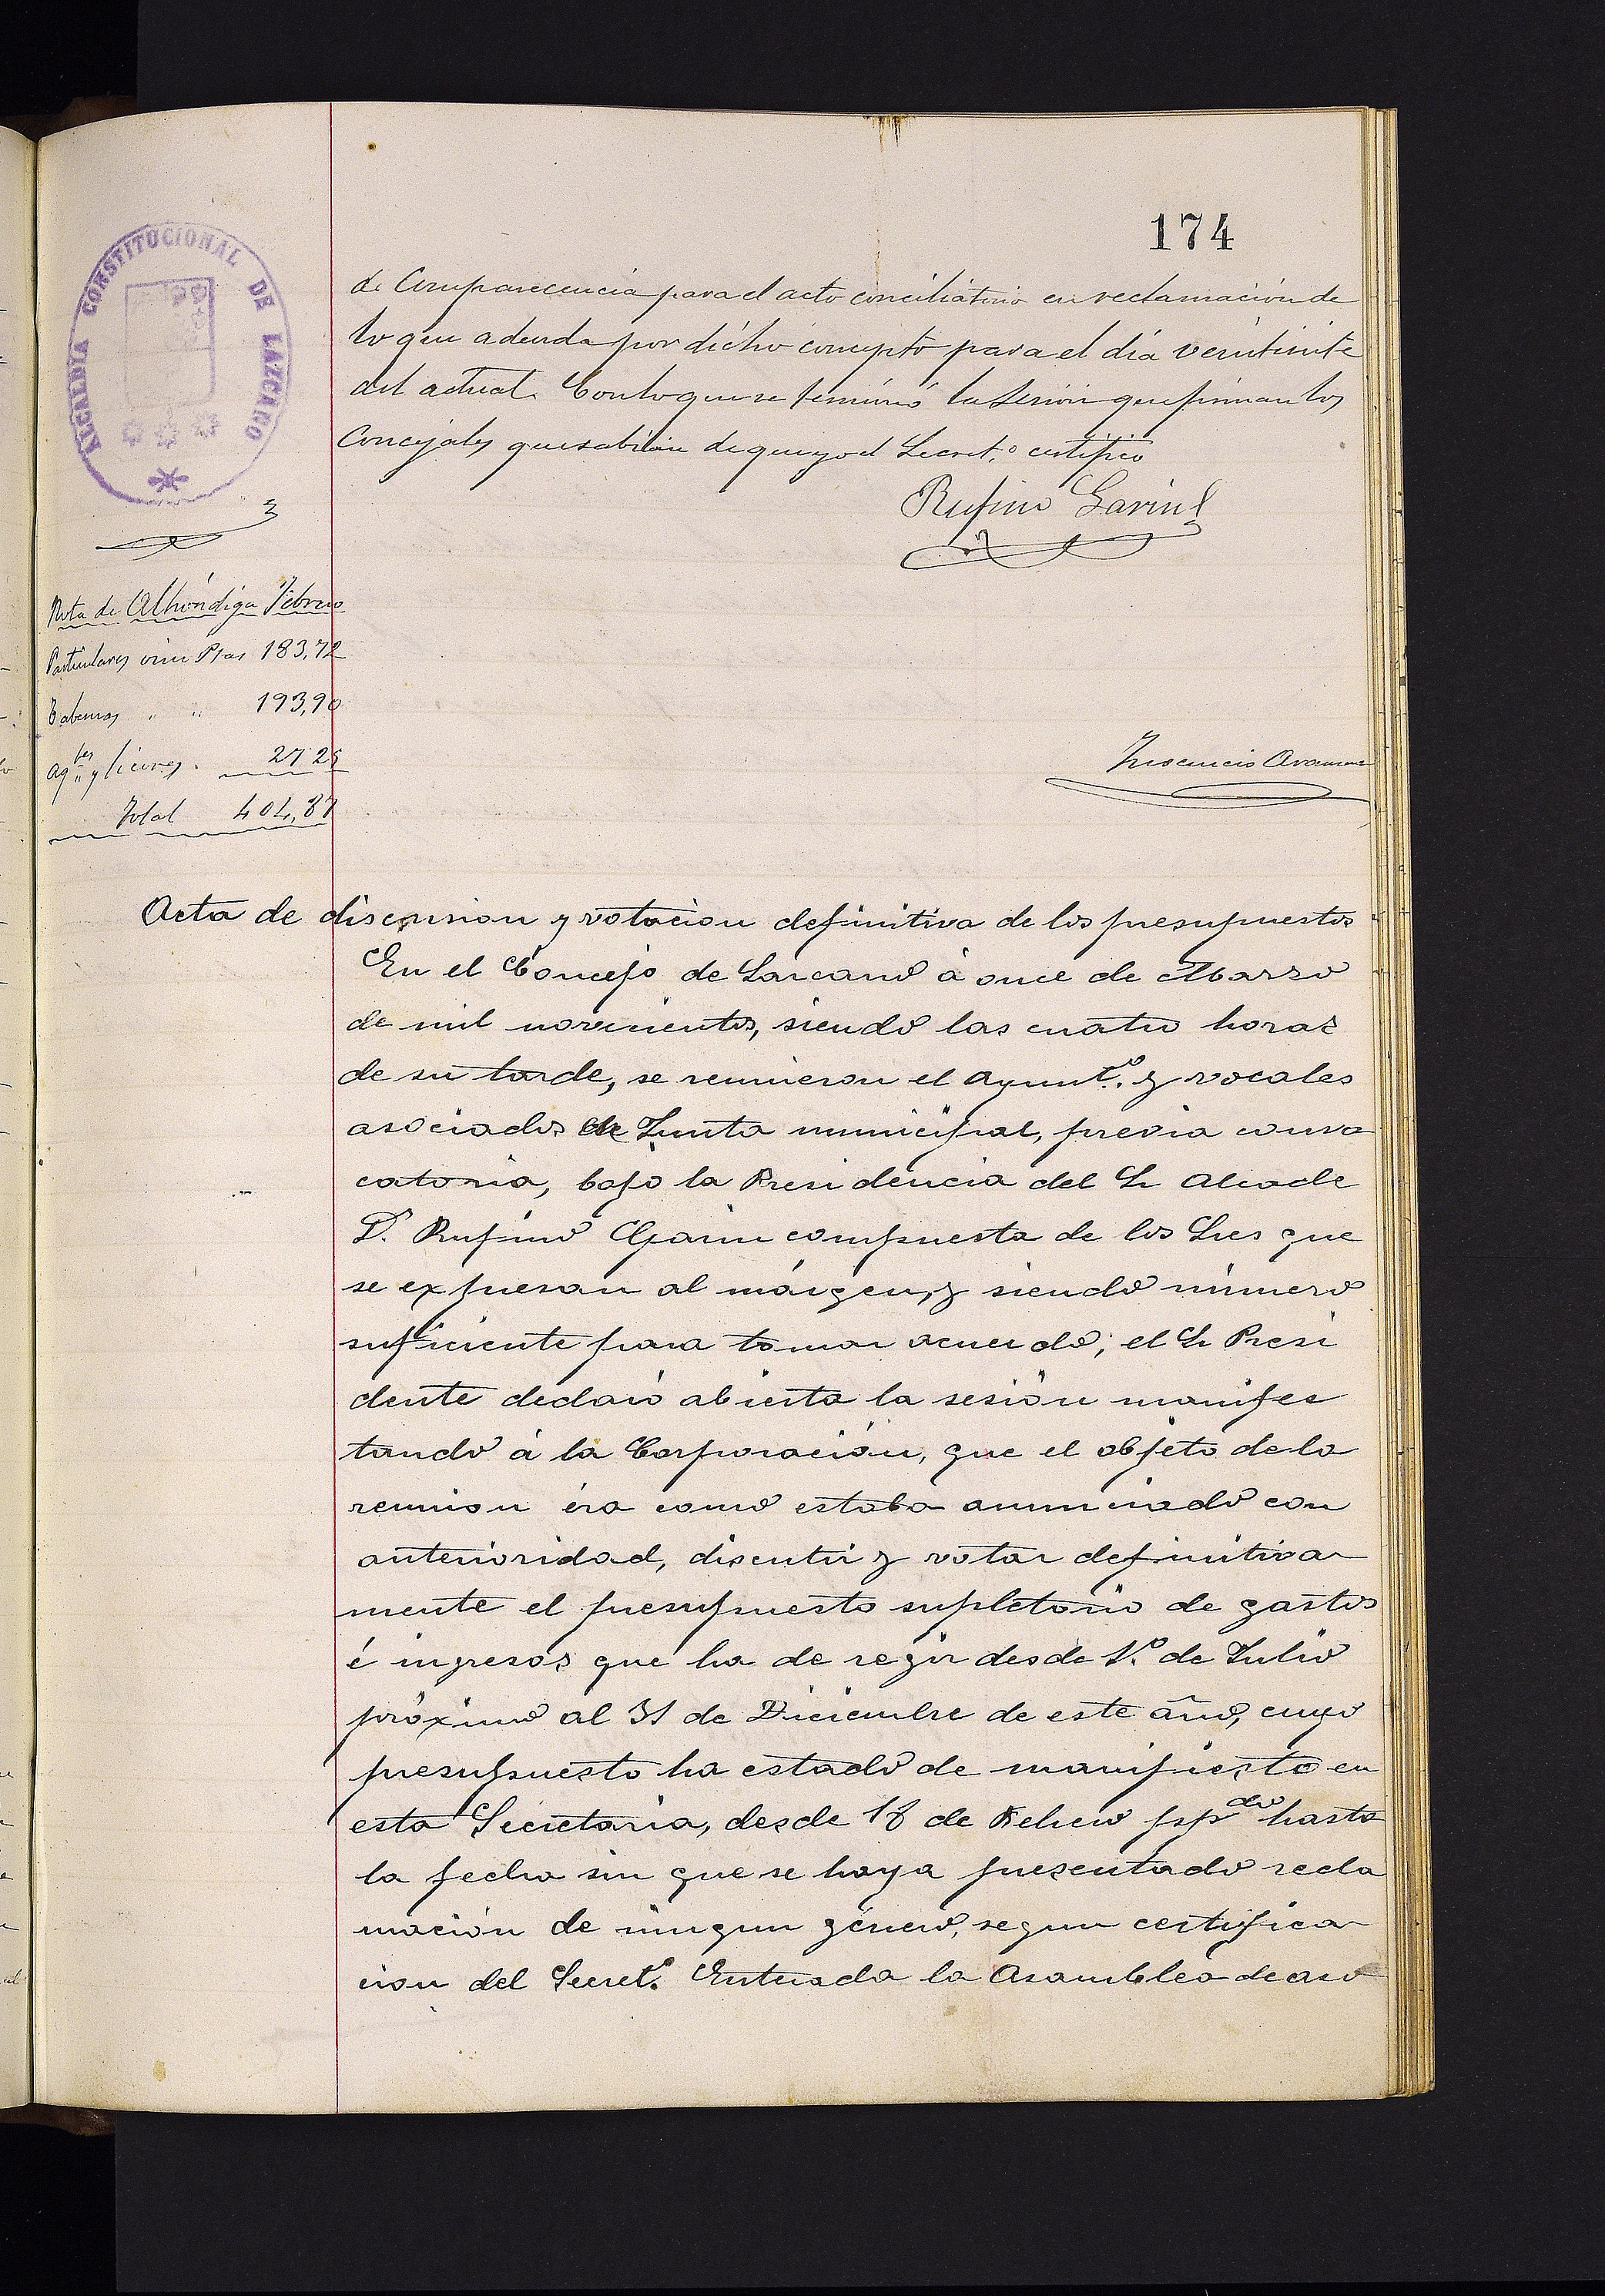 174
ALCALDIA CONSTITUCIONAL DE LAZCANO
de Comparecencia para el acto conciliatorio en reclamación de
lo que adeuda por dicho concepto para el día veintisiete
del actual. Con lo que se terminó la sesión que firman los
Concejales que sabían de que yo el Secret.º certifico
Rufino Garin
Nota de Alhóndiga Febrero
Particulares vino Ptas 183,72
Tabernas " " 193,90
Agtes y licores. 27 25
Total 404,87
Inocencio
Acta de discusion y votacion definitiva de los presupuestos
En el Concejo de Lazcano á once de Marzo
de mil novecientos, siendo las cuatro horas
de su tarde, se reunieron el Ayunt.º y vocales
asociados de Junta municipal, previa convo
catoria, bajo la Presidencia del Sr Alcade
D. Rufino Garin compuesta de los Sres que
se expresan al márgen, y siendo número
suficiente para tomar acuerdo; el Sr Presi
dente declaró abierta la sesión manifes
tando á la Corporación, que el objeto de la
reunion éra como estaba anunciado con
anterioridad, discutir y votar definitiva
mente el presupuesto supletorio de gastos
é ingresos que ha de regir desde 1.º de Julio
próximo al 31 de Diciembre de este año, cuyo
presupuesto ha estado de manifiesto en
esta Secretaria, desde 18 de Febrero ppdo hasta
la fecha sin que se haya presentado recla
mación de ningun género, segun certifica
cion del Secret.º Enterada la Asamblea de aso